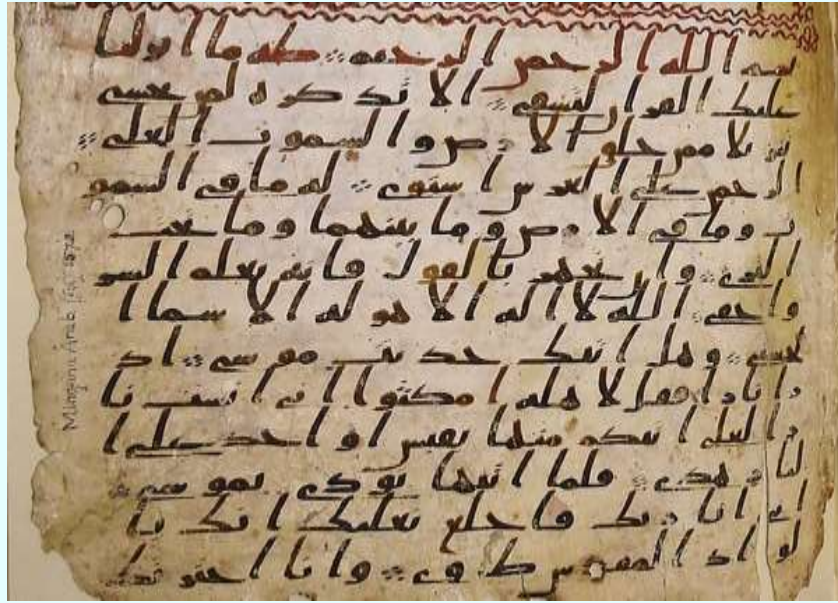 بسم الله الرحمن الرحيم طه ما انزلنا
عليك القران لتشقى الا تذكره لمن يخشى
تنزيلا ممن خلق الارض والسموت العلى
الرحمن على العرش استوى له ما في السمو
ت وما في الارض وما بينهما وما تحت
الثرى وان تجهر بالقول فانه يعلم السر
واخفى الله لا اله الا هو له الاسما ا
لحسنى وهل اتيك حديث موسى اذ
را نارا فقل لاهله امكثوا اني انست نا
را لعلي اتيكم منها بقبس او اجد على ا
لنار هدى فلما اتيها نودي يموسى
اني انا ربك فاخلع نعليك انك با
لواد المقدس طوى وانا اخترتك
Mingana Arab Isl. 1572